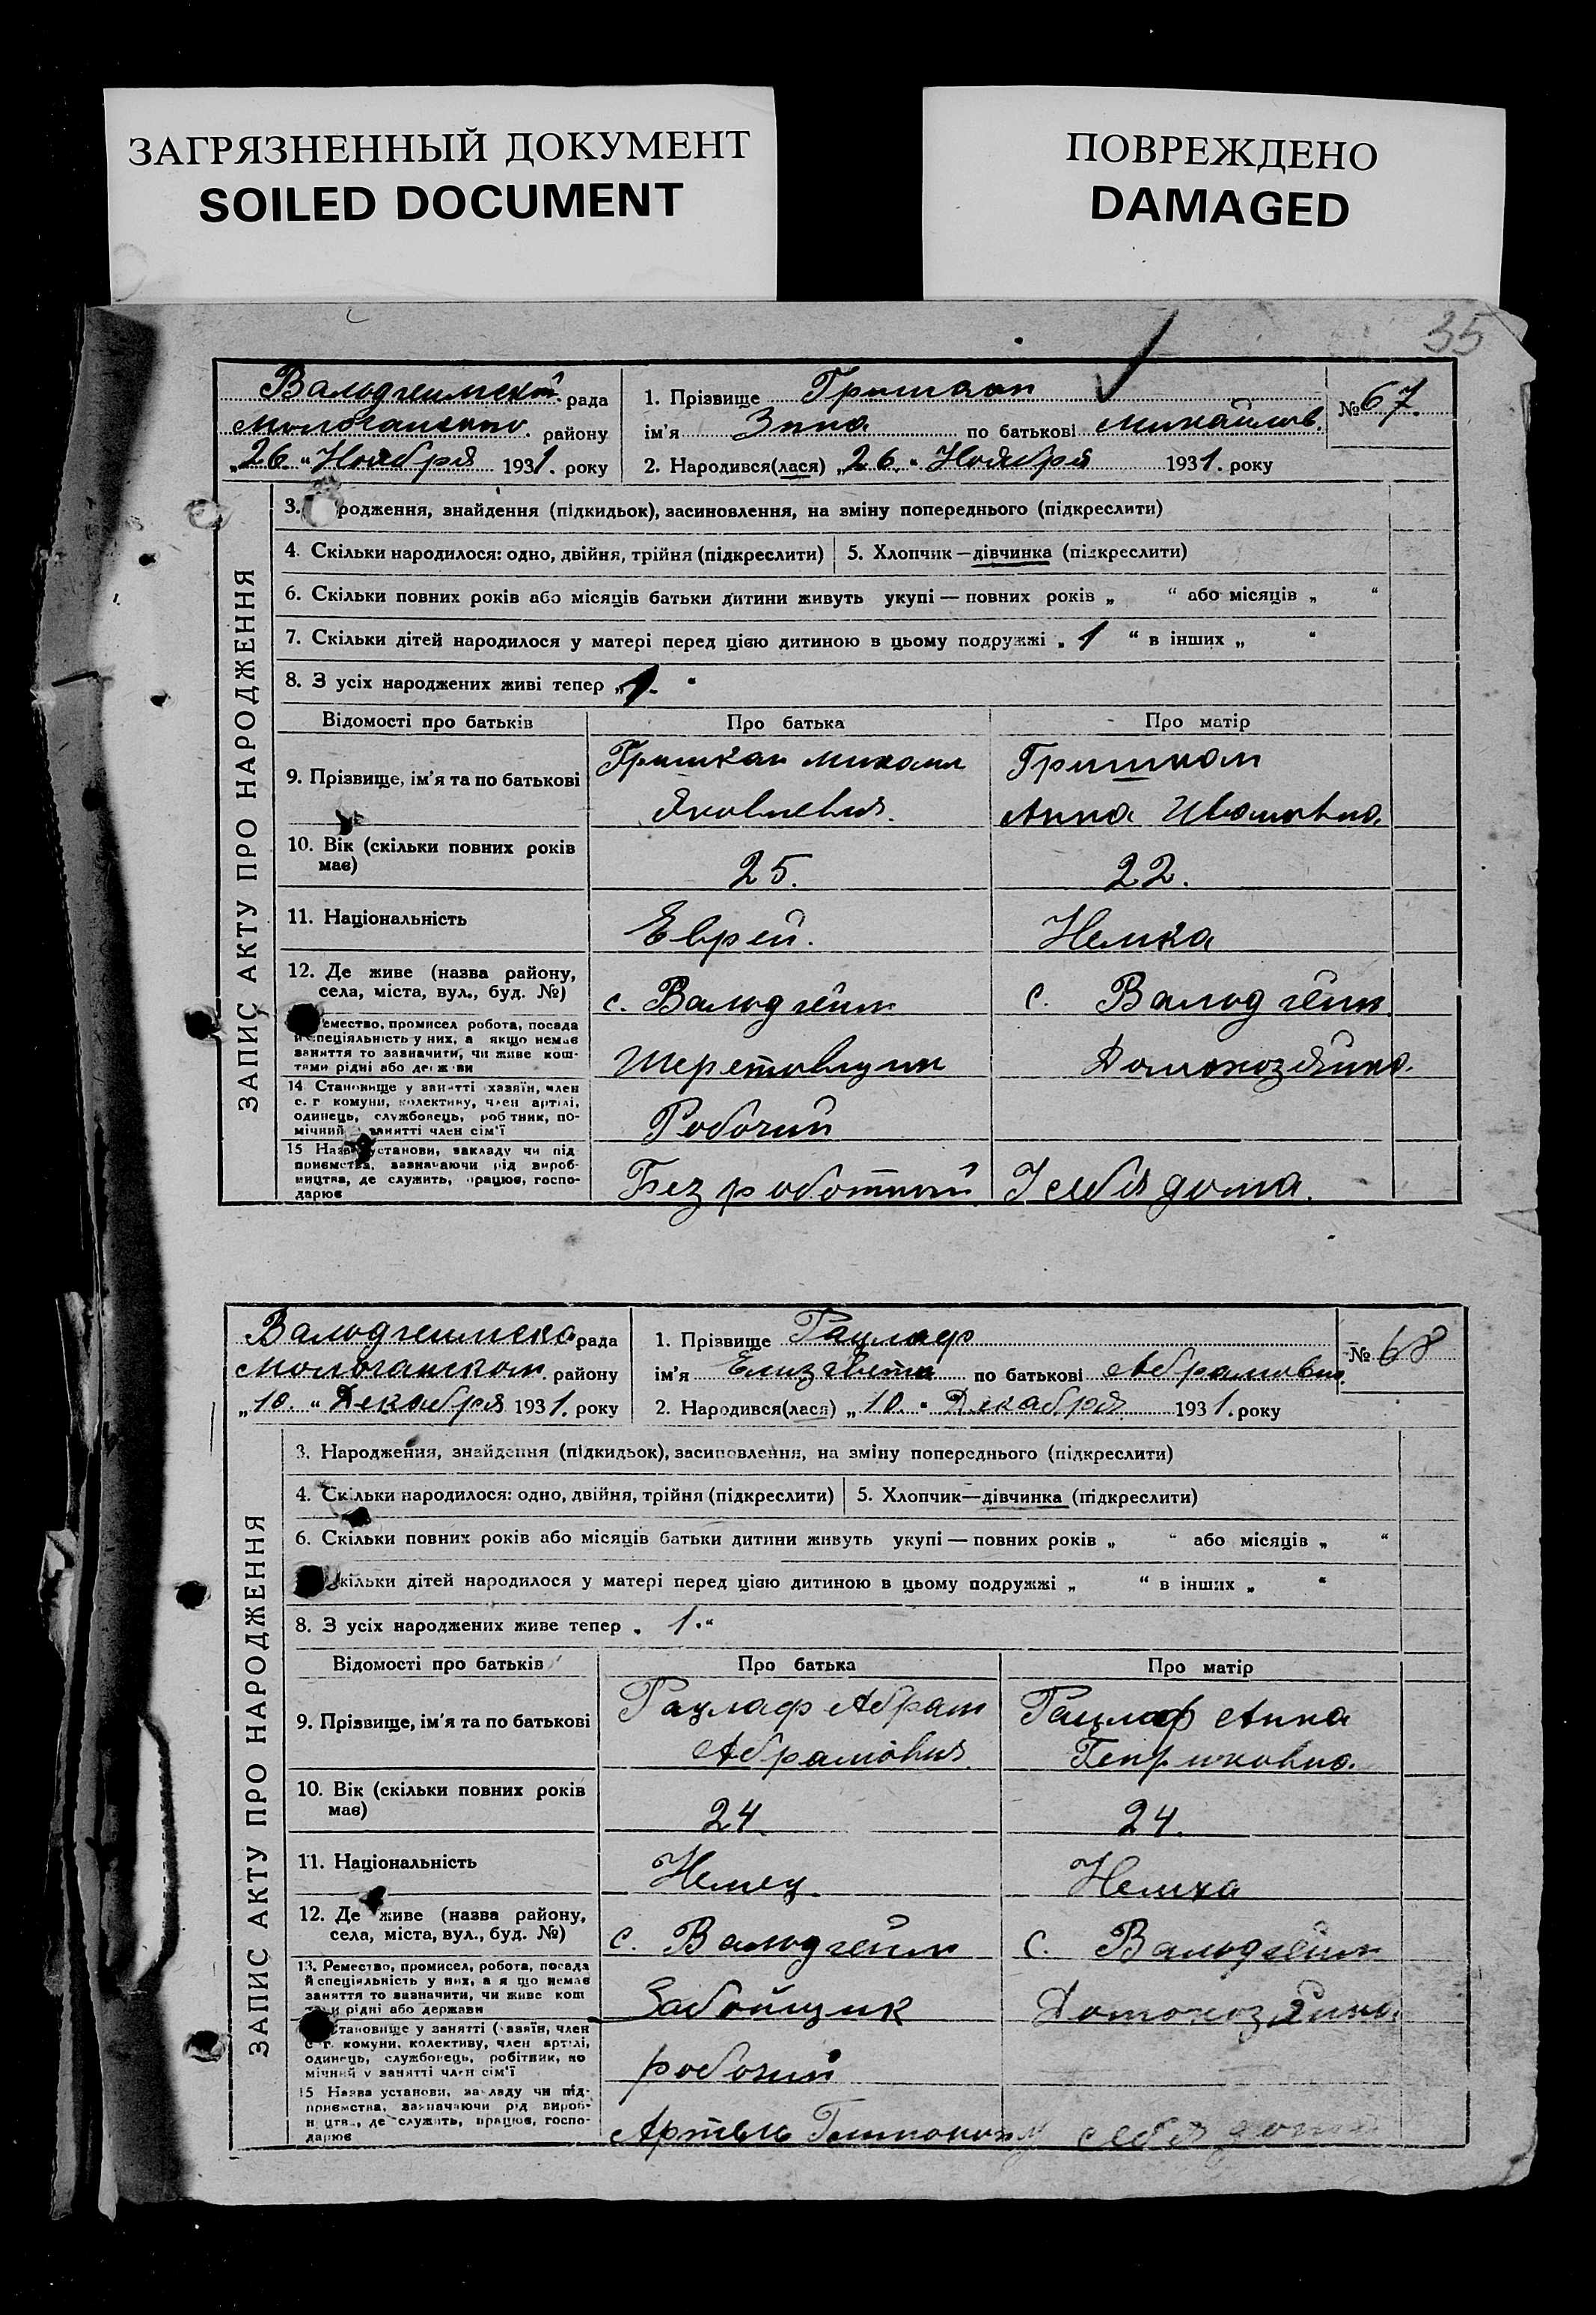 ЗАГРЯЗНЕННЫЙ ДОКУМЕНТ
SOILED DOCUMENT
ПОВРЕЖДЕНО
DAMAGED
35
Вальдгеимской рада
Молочанского району
„26“ Ноября 1931. року
1. Прізвище Гришкан
ім'я Зина по батькові Михайлов.
2. Народився(лася) „26“ Ноября 1931. року
№ 67.
ЗАПИС АКТУ ПРО НАРОДЖЕННЯ
3. родження, знайдення (підкидьок), засиновлення, на зміну попереднього (підкреслити)
4. Скільки народилося: одно, двійня, трійня (підкреслити) 5. Хлопчик—дівчинка (підкреслити)
6. Скільки повних років або місяців батьки дитини живуть укупі — повних років „ “ або місяців „ “
7. Скільки дітей народилося у матері перед цією дитиною в цьому подружжі „ 1 “ в інших „ “
8. З усіх народжених живі тепер „ 1. “
Відомості про батьків Про батька Про матір
9. Прізвище, ім'я та по батькові Гришкан Михаил Яковлевич. Гришкан Анна Ивановна.
10. Вік (скільки повних років має) 25. 22.
11. Національність Еврей. Немка
12. Де живе (назва району, села, міста, вул., буд. №) с. Вальдгейм с. Вальдгейм
емество, промисел робота, посада
й специяльність у них, а якщо немає
заняття то зазначити, чи живе кош-
тами рідні або держави
Шеретовщик Домохозяйка.
14 Становище у занятті хазяїн, член
с. г комуни, колективу, член артілі,
одинець, службовець, робітник, по-
мічний занятті член сім'ї
Рабочий
15 Назва установи, закладу чи під
приємства, зазначаючи рід вироб-
ництва, де служить, працює, госпо-
дарює
Безработный У себя дома.
Вальдгеимска рада
Молочанском району
„10. “ Декабря 1931. року
1. Прізвище Рацлаф
ім'я Елизавета по батькові Абрамовна.
2. Народився(лася) „10. “ Декабря 1931. року
№ 68
ЗАПИС АКТУ ПРО НАРОДЖЕННЯ
3. Народження, знайдення (підкидьок), засиновлення, на зміну попереднього (підкреслити)
4. Скільки народилося: одно, двійня, трійня (підкреслити) 5. Хлопчик—дівчинка (підкреслити)
6. Скільки повних років або місяців батьки дитини живуть укупі — повних років „ “ або місяців „ “
кільки дітей народилося у матері перед цією дитиною в цьому подружжі „ “ в інших „ “
8. З усіх народжених живе тепер „ 1. “
Відомості про батьків Про батька Про матір
9. Прізвище, ім'я та по батькові Рацлаф Абрам Абрамович. Рацлаф Анна Генриховна.
10. Вік (скільки повних років має) 24 24.
11. Національність Немец Немка
12. Де живе (назва району, села, міста, вул., буд. №) с. Вальдгейм с. Вальдгейм
13. Ремество, промисел, робота, посада
й специяльність у них, а якщо немає
заняття то зазначити, чи живе кош
тами рідні або держави
Забойщик Домохозяйка.
становище у занятті (хазяїн, член
с г. комуни, колективу, член артілі,
одинець, службовець, робітник, по
мічний у занятті член сім'ї
рабочий
15 Назва установи, закладу чи під-
приємства, зазначаючи рід вироб-
ництва, де служить, працює, госпо-
дарює
Артель У себя дома